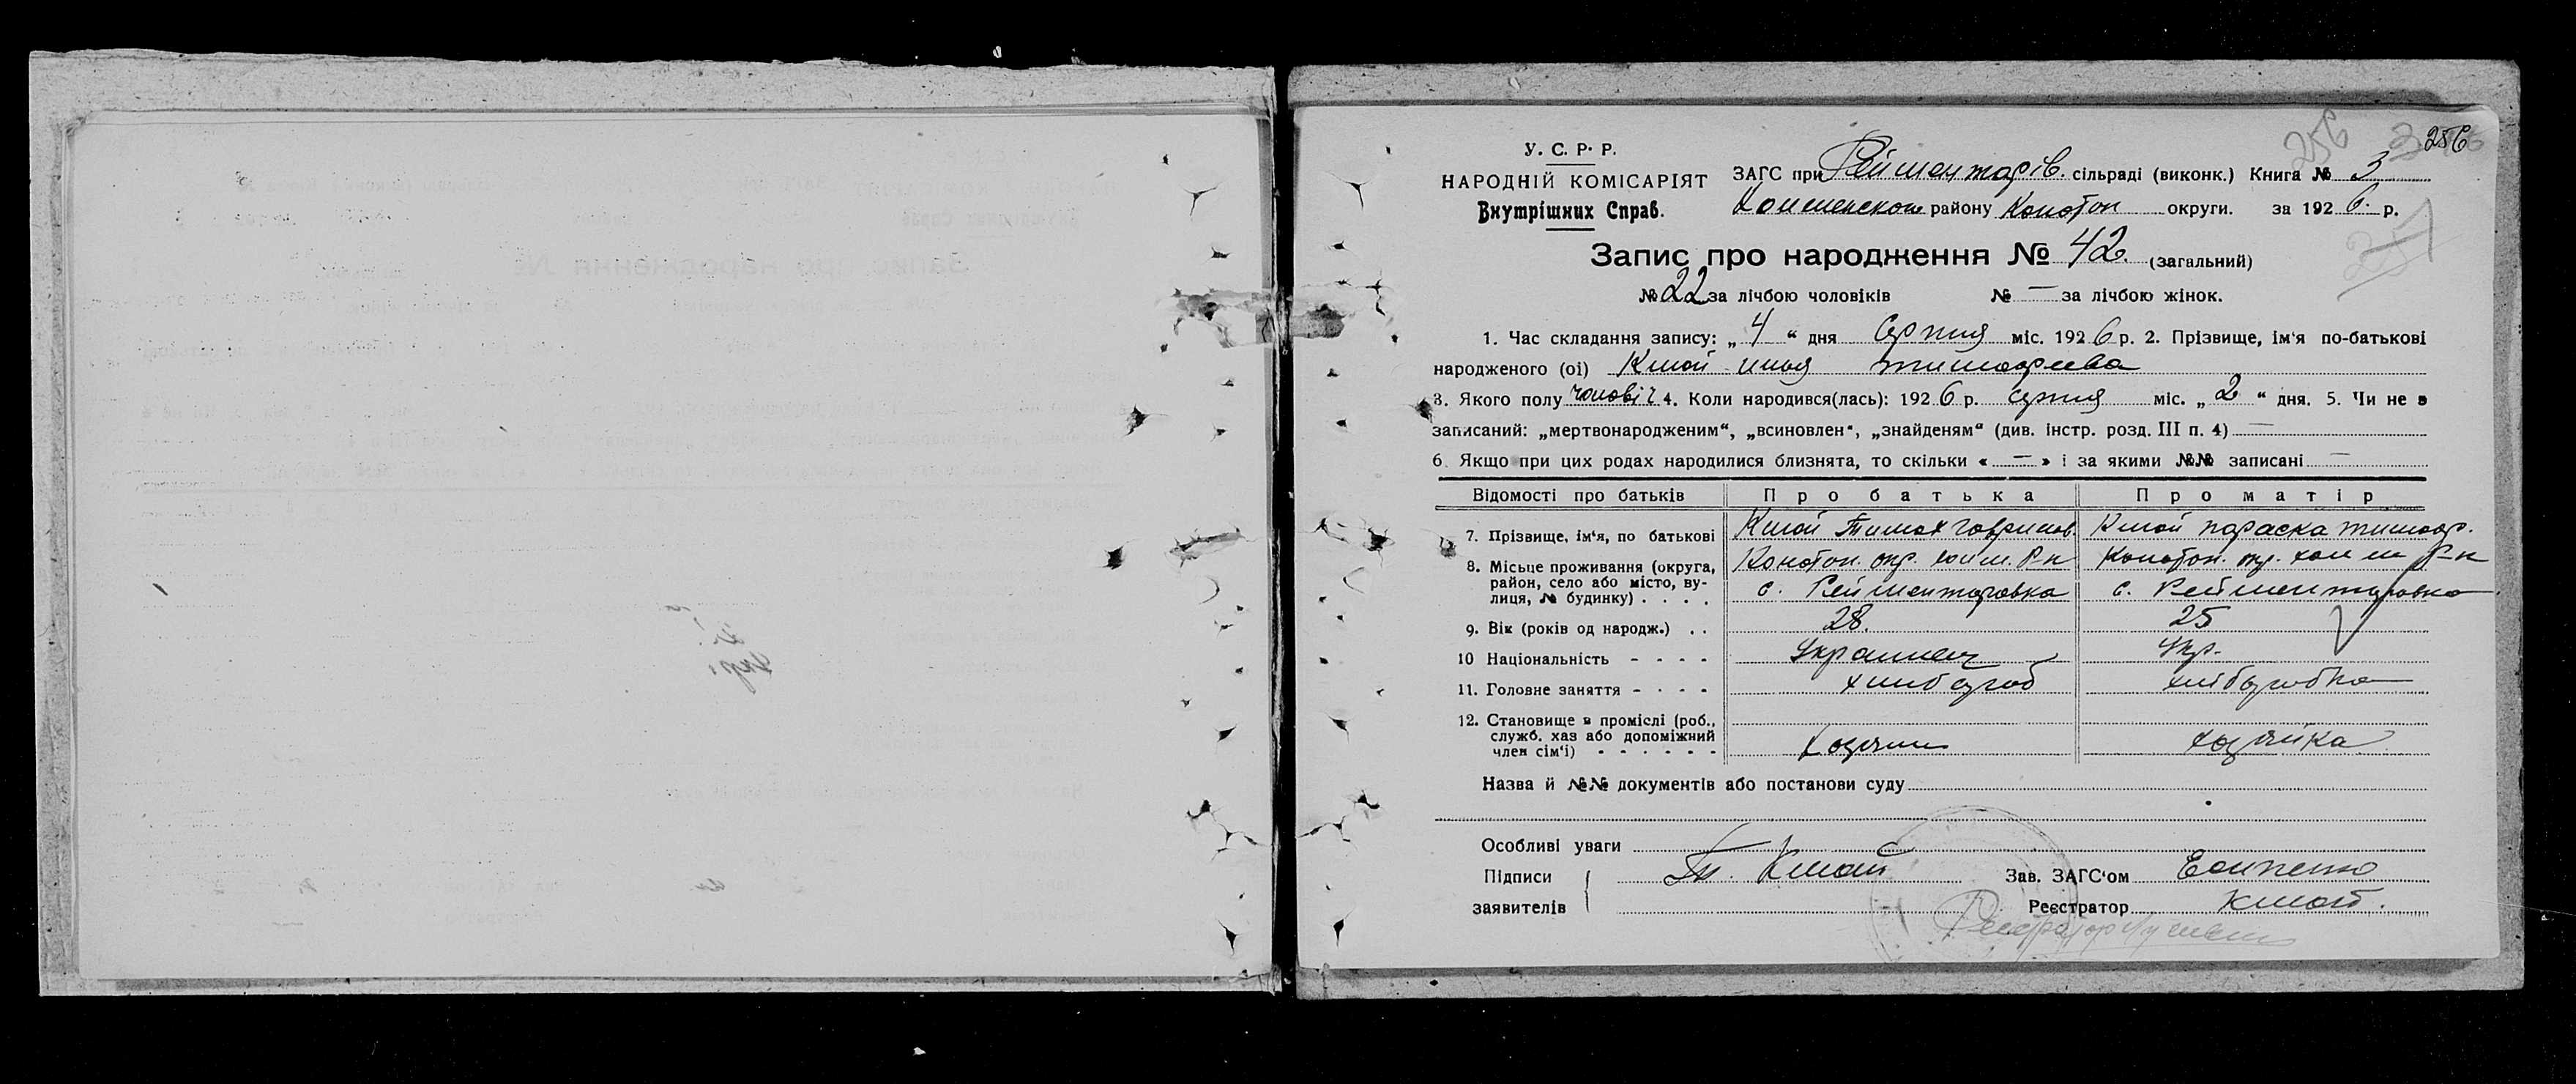 256
256
У. С. Р. Р.
НАРОДНІЙ КОМІСАРІЯТ
Внутрішних Справ.
ЗАГС при Рейментарів. сільраді (виконк.) Книга № 3
району Конотоп округи. за 1926. р.
Запис про народження № 42. (загальний)
№ 22 за лічбою чоловіків № — за лічбою жінок.
1. Час складання запису: „ 4 “ дня Серпня міс. 1926 р. 2. Прізвище, ім'я по-батькові
народженого (ої) Кмой Илья тимофеева
3. Якого полу чоловіч 4. Коли народився(лась): 1926 р. серпня міс. „ 2 “ дня. 5. Чи не є
записаний: „мертвонародженим“, „всиновлен“, „знайденям“ (див. інстр. розд. III п. 4) —
6. Якщо при цих родах народилися близнята, то скільки « — » і за якими №№ записані —
Відомості про батьків Про батька Про матір
7. Прізвище, ім'я, по батькові Кмой Тимох гаврилов. Кмой параска тимоф.
8. Місьце проживання (округа, Конотоп. окр. р-н Конотоп. окр. р-н
район, село або місто, ву- с. Рейментаровка с. Рейментаровка
лиця, № будинку) . . . .
9. Вік (років од народж.) . . 28. 25
10 Національність - - - - Украинец Укр.
11. Головне заняття - - - - хлибороб хлиборобка
12. Становище в промислі (роб.,
служб. хаз або допоміжний
член сім'ї) - - - - - - Хозяин хозяйка
Назва й №№ документів або постанови суду
Особливі уваги
Підписи Кмой Зав. ЗАГС'ом
заявителів Реєстратор Кмой.